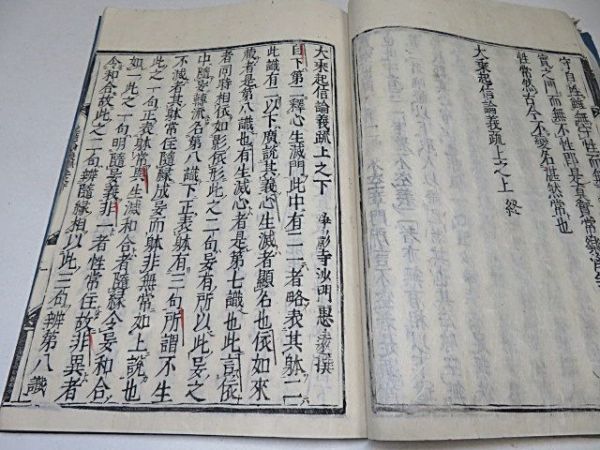 性常然古今不變名湛然常也
大乘起信論義疏上之上 終
大乘起信論義疏上之下 淨影寺沙門慧遠撰
自下第二釋心生滅門此中有二一者略表其躰二
此識有二以下廣說其義心生滅者顯名也依如來
藏者是第八識也有生滅心者是第七識也此言依
者同時相依如影依形此之二句妄有所以此妄之
中隨妄轉流名第八識下正表躰有三句所謂不生
不滅者其躰常住隨緣成妄而躰非無常如上說也
此之一句正表躰常與生滅和合者隨緣令妄和合
如一此之一句明隨妄義非一者性常住故非異者
令和合故此之二句辨隨緣相以此三句辨第八識